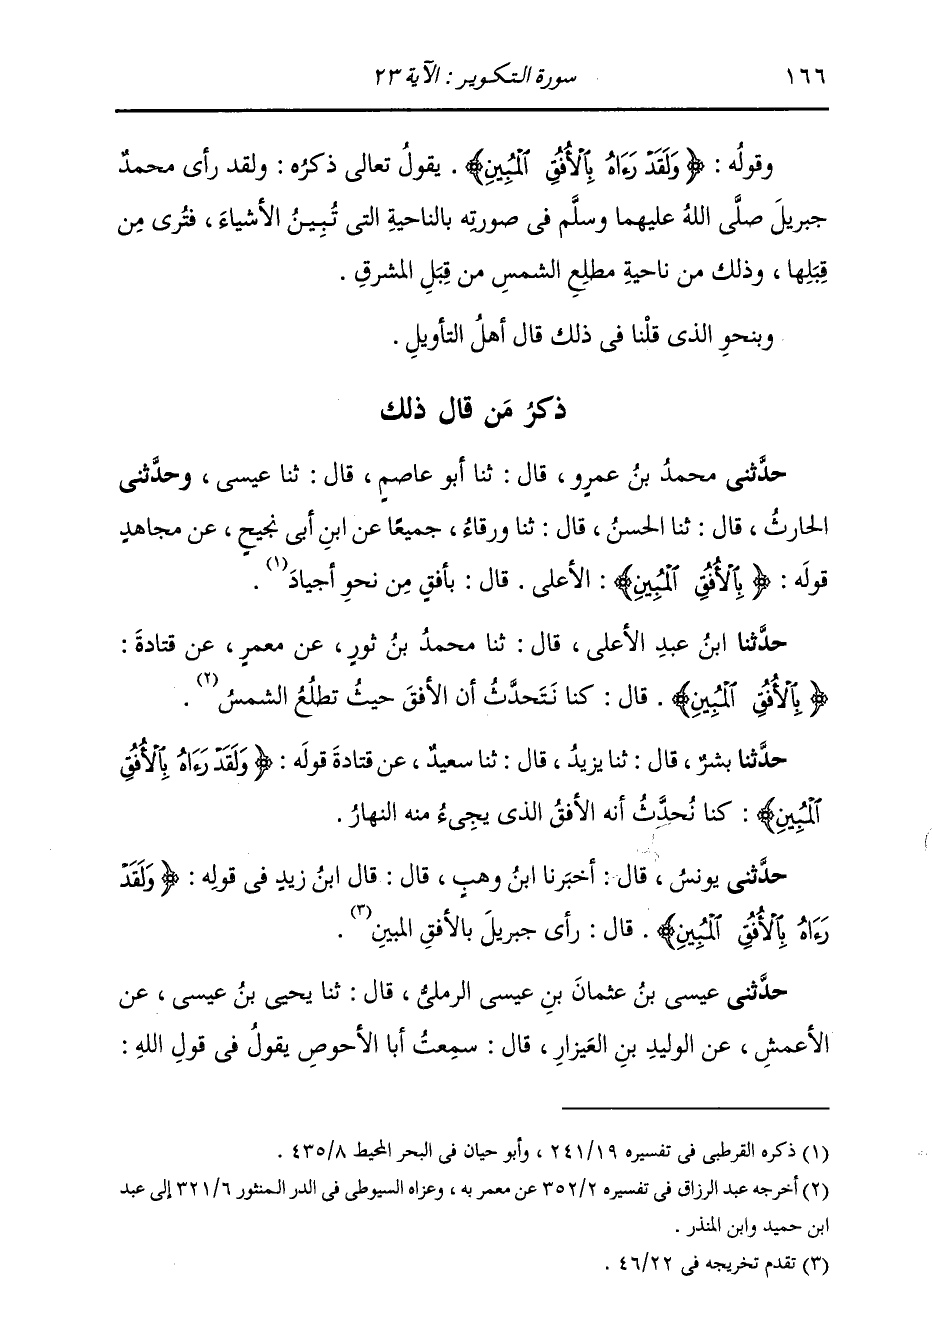 ١٦٦ سورة التكوير : الآية ٢٣
وقولُه : ﴿ وَلَقَدْ رَءَاهُ بِٱلْأُفُقِ ٱلْمُبِينِ﴾ . يقولُ تعالى ذكرُه : ولقد رأى محمدٌ
جبريلَ صلَّى اللهُ عليهما وسلَّم فى صورتِه بالناحيةِ التى تُبِينُ الأشياءَ ، فتُرى مِن
قِبَلِها ، وذلك من ناحيةِ مطلعِ الشمسِ من قِبَلِ المشرقِ .
وبنحوِ الذى قلْنا فى ذلك قال أهلُ التأويلِ .
ذكرُ مَن قال ذلك
حدَّثنى محمدُ بنُ عمرٍو ، قال : ثنا أبو عاصمٍ ، قال : ثنا عيسى ، وحدَّثنى
الحارثُ ، قال : ثنا الحسنُ ، قال : ثنا ورقاءُ ، جميعًا عن ابنِ أبى نجيحٍ ، عن مجاهدٍ
قولَه : ﴿ بِٱلْأُفُقِ ٱلْمُبِينِ﴾ : الأعلى . قال : بأفقٍ مِن نحوِ أجيادَ(١) .
حدَّثنا ابنُ عبدِ الأعلى ، قال : ثنا محمدُ بنُ ثورٍ ، عن معمرٍ ، عن قتادةَ :
﴿ بِٱلْأُفُقِ ٱلْمُبِينِ﴾ . قال : كنا نَتَحدَّثُ أن الأفقَ حيثُ تطلُعُ الشمسُ(٢) .
حدَّثنا بشرٌ ، قال : ثنا يزيدُ ، قال : ثنا سعيدٌ ، عن قتادةَ قولَه : ﴿ وَلَقَدْ رَءَاهُ بِٱلْأُفُقِ
ٱلْمُبِينِ﴾ : كنا نُحدَّثُ أنه الأفقُ الذى يجِىءُ منه النهارُ .
حدَّثنى يونسُ ، قال : أخبَرنا ابنُ وهبٍ ، قال : قال ابنُ زيدٍ فى قولِه : ﴿ وَلَقَدْ
رَءَاهُ بِٱلْأُفُقِ ٱلْمُبِينِ﴾ . قال : رأى جبريلَ بالأفقِ المبينِ(٣) .
حدَّثنى عيسى بنُ عثمانَ بنِ عيسى الرملىُّ ، قال : ثنا يحيى بنُ عيسى ، عن
الأعمشِ ، عن الوليدِ بنِ العَيزارِ ، قال : سمِعتُ أبا الأحوصِ يقولُ فى قولِ اللهِ :
(١) ذكره القرطبى فى تفسيره ٢٤١/١٩ ، وأبو حيان فى البحر المحيط ٤٣٥/٨ .
(٢) أخرجه عبد الرزاق فى تفسيره ٣٥٢/٢ عن معمر به ، وعزاه السيوطى فى الدر المنثور ٣٢١/٦ إلى عبد
ابن حميد وابن المنذر .
(٣) تقدم تخريجه فى ٤٦/٢٢ .